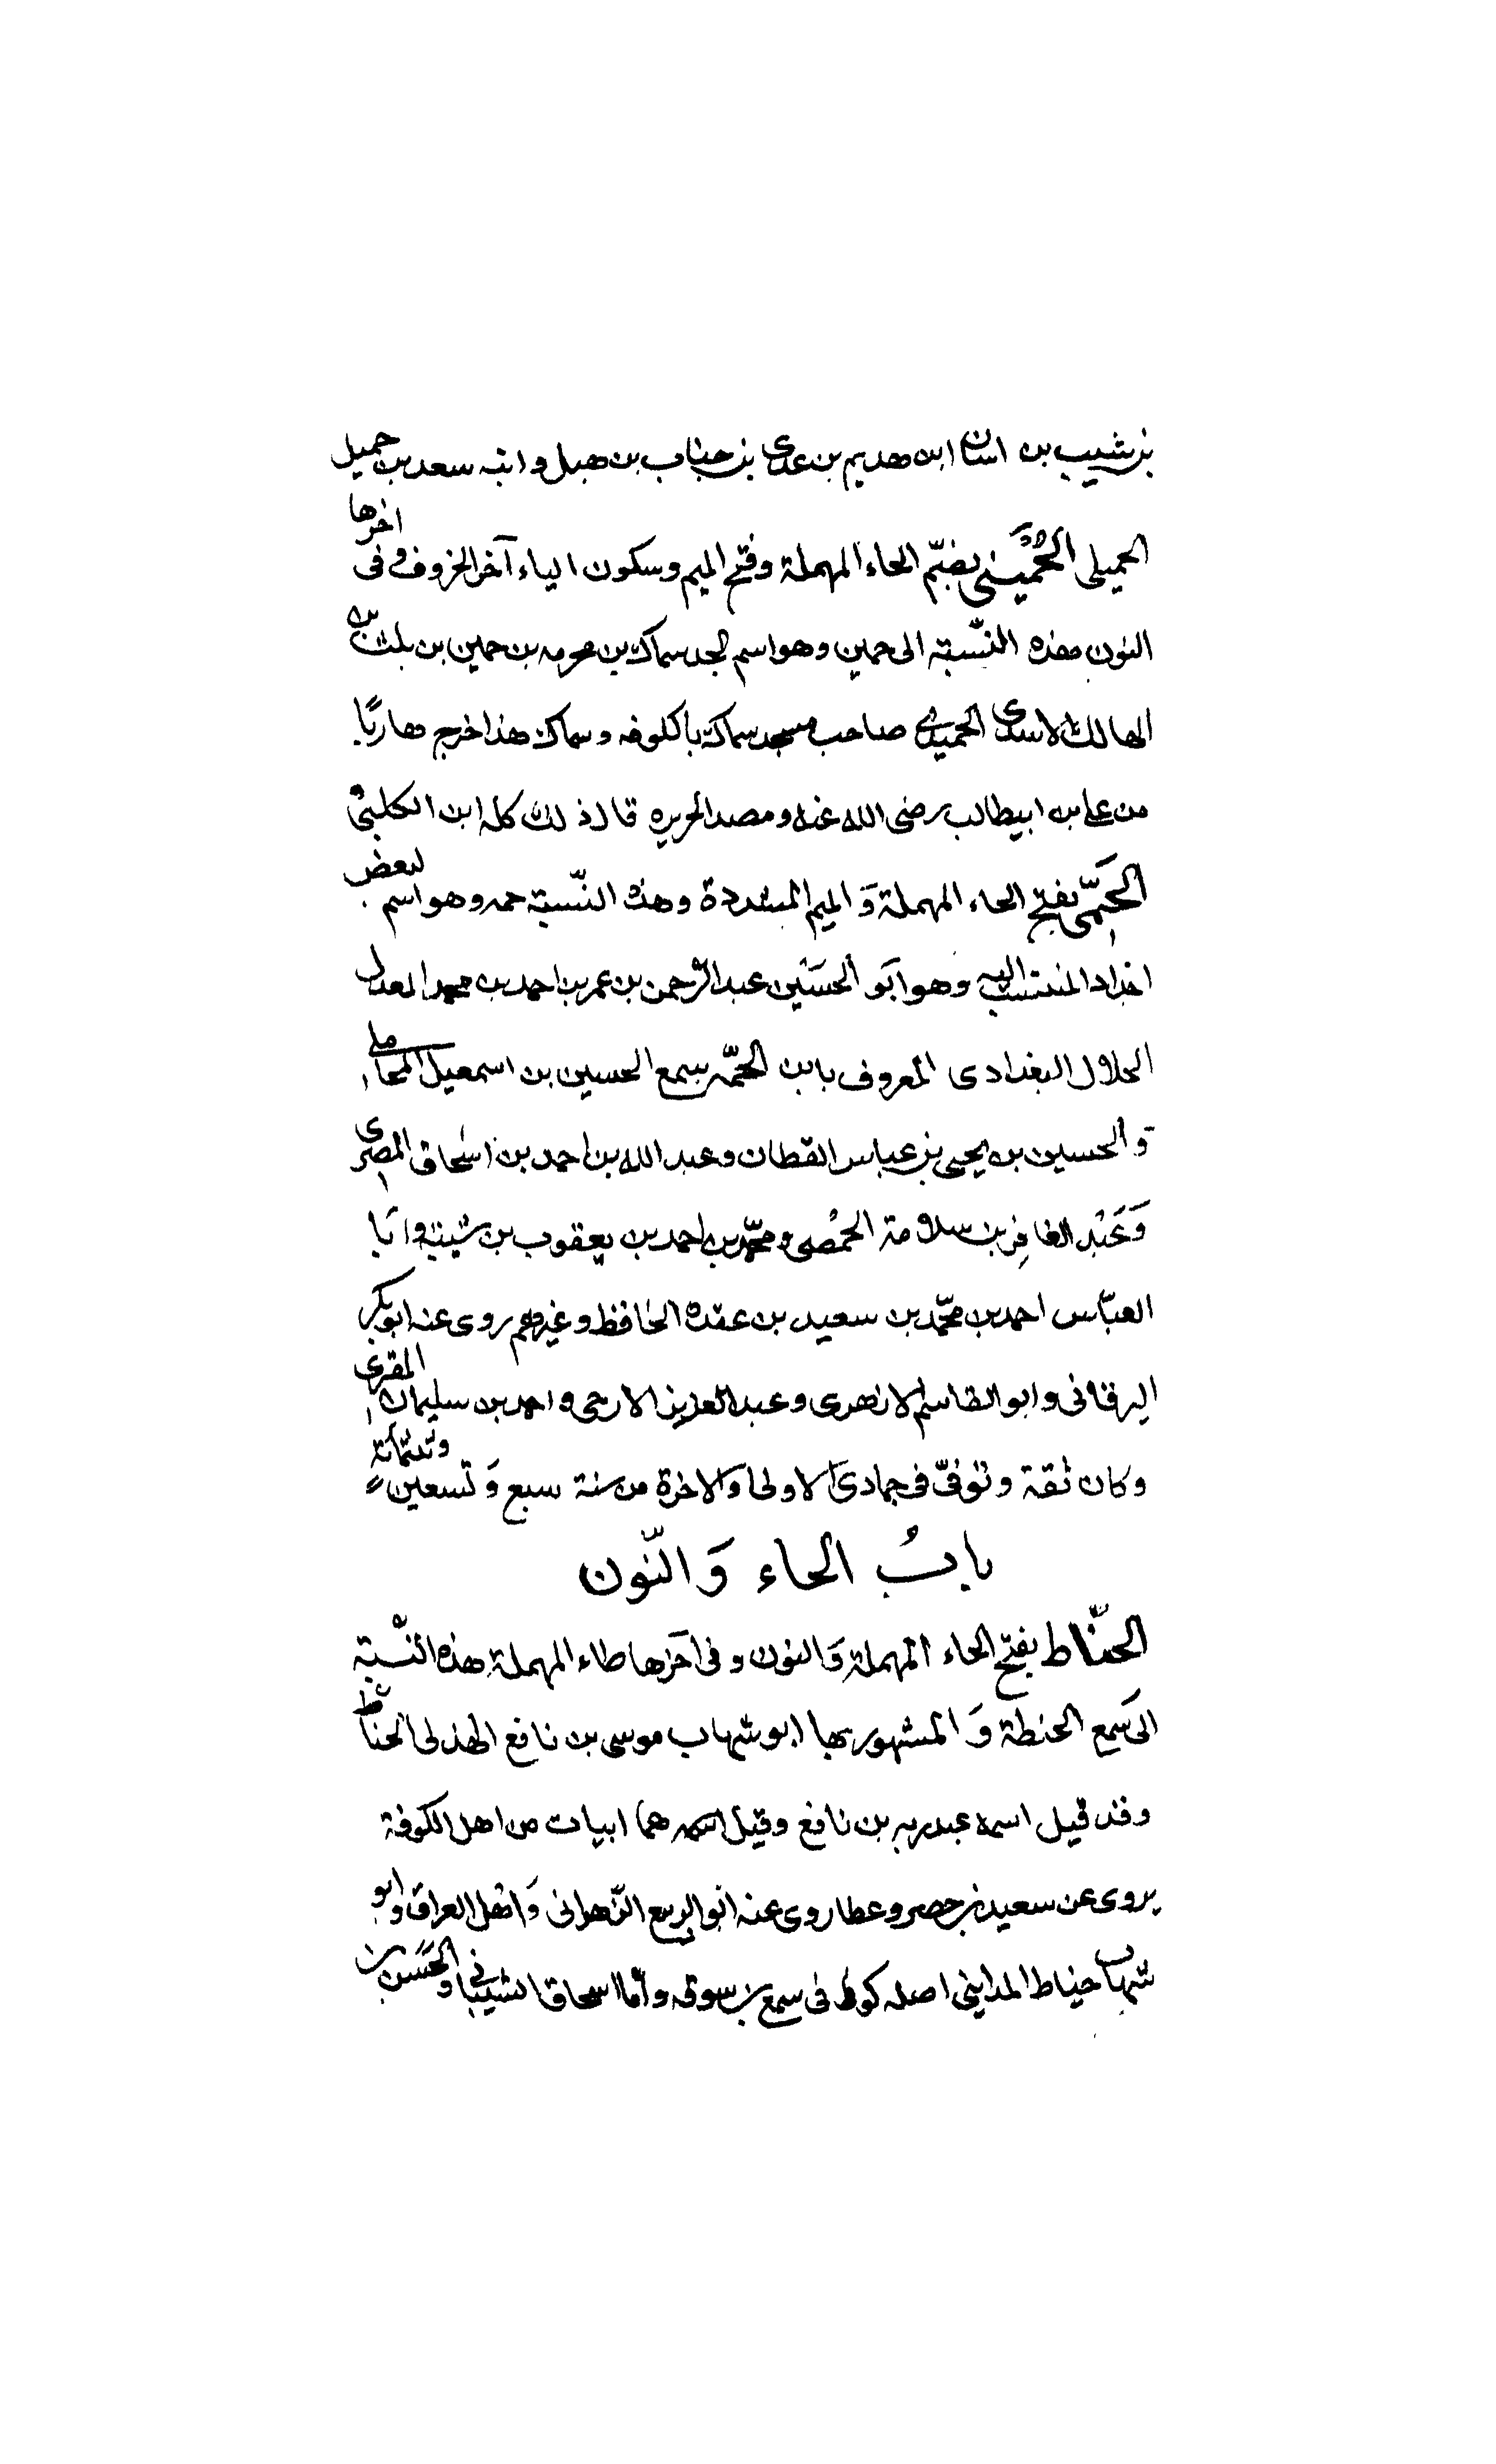 بن شبيب بن اساف ابن هديم بن عدى بن جناب بن هبل وابنه سعد بن حميل
الحميلى الحُمَينى بضمّ الحاء المهملة وفتح الميم وسكون الياء آخر الحروف وفى اخرها
النون هذه النّسبة الى حمين وهو اسم لجد سماك بن مخرمه بن حمين بن بلث بن
الهالك الاسدى الحمينى صاحب مسجد سماك باكلوفه وسماك هذا خرج هاربًا
من على بن ابيطالب رضى الله عنه وقصد الجزيره قال ذلك كله ابن الكلبىّ
الحَمّى بفتح الحاء المهملة وَالميم المشددة وهذه النّسبة حمه وهو اسم لبعض
اجداد المنتسب اليه وهو ابَو الحسَيْن عبد الرّحمن بن عمر بن احمد بن محمد المعدل
الخلال البغدادى المعروف بابن الحمّه سمع الحسين بن اسمعيل المحاملى
وَالحسين بن يحيى بن عياس القطان وعبد الله بن احمد بن اسْحاق المصرى
وَعَبْد الغافِر بن سلامة الحمْصى ومحمّد بن احمد بن يعقوب بن شيبة وابَا
العبّاس احمد بن محمّد بن سعيد بن عقده الحافظ وغيرهم روى عنه ابو بكر
البرقانى وابو القاسم الازهرى وعبد العزيز الازجى واحمد بن سليمان المقرى
وكان ثقة وتوفىّ فى جمادى الاولى اوَالاخرة من سنة سبع وَتسعين وثلثمائة
بابُ الحاء وَالنّون
الحنّاط بفتح الحاء المهملة وَالنون وفى آخرها طاء المهملة هذه النّسْبة
الى سمع الحنطة وَالمشهور بها ابو شهاب موسى بن نافع الهذلى الحنّاط
وقد قيل اسمه عبد ربه بن نافع وقيل اسمه هما ابيات من اهل الكوفة
يروى عن سعيد بن جبير وعطا روى عنه ابو الربيع الزّهرانى وَاهل العراق وابو
شهاب حناط المداينى اصله كوفى سمع بن سوقه وأما اسحاق الشيبانى والحَسَن بن